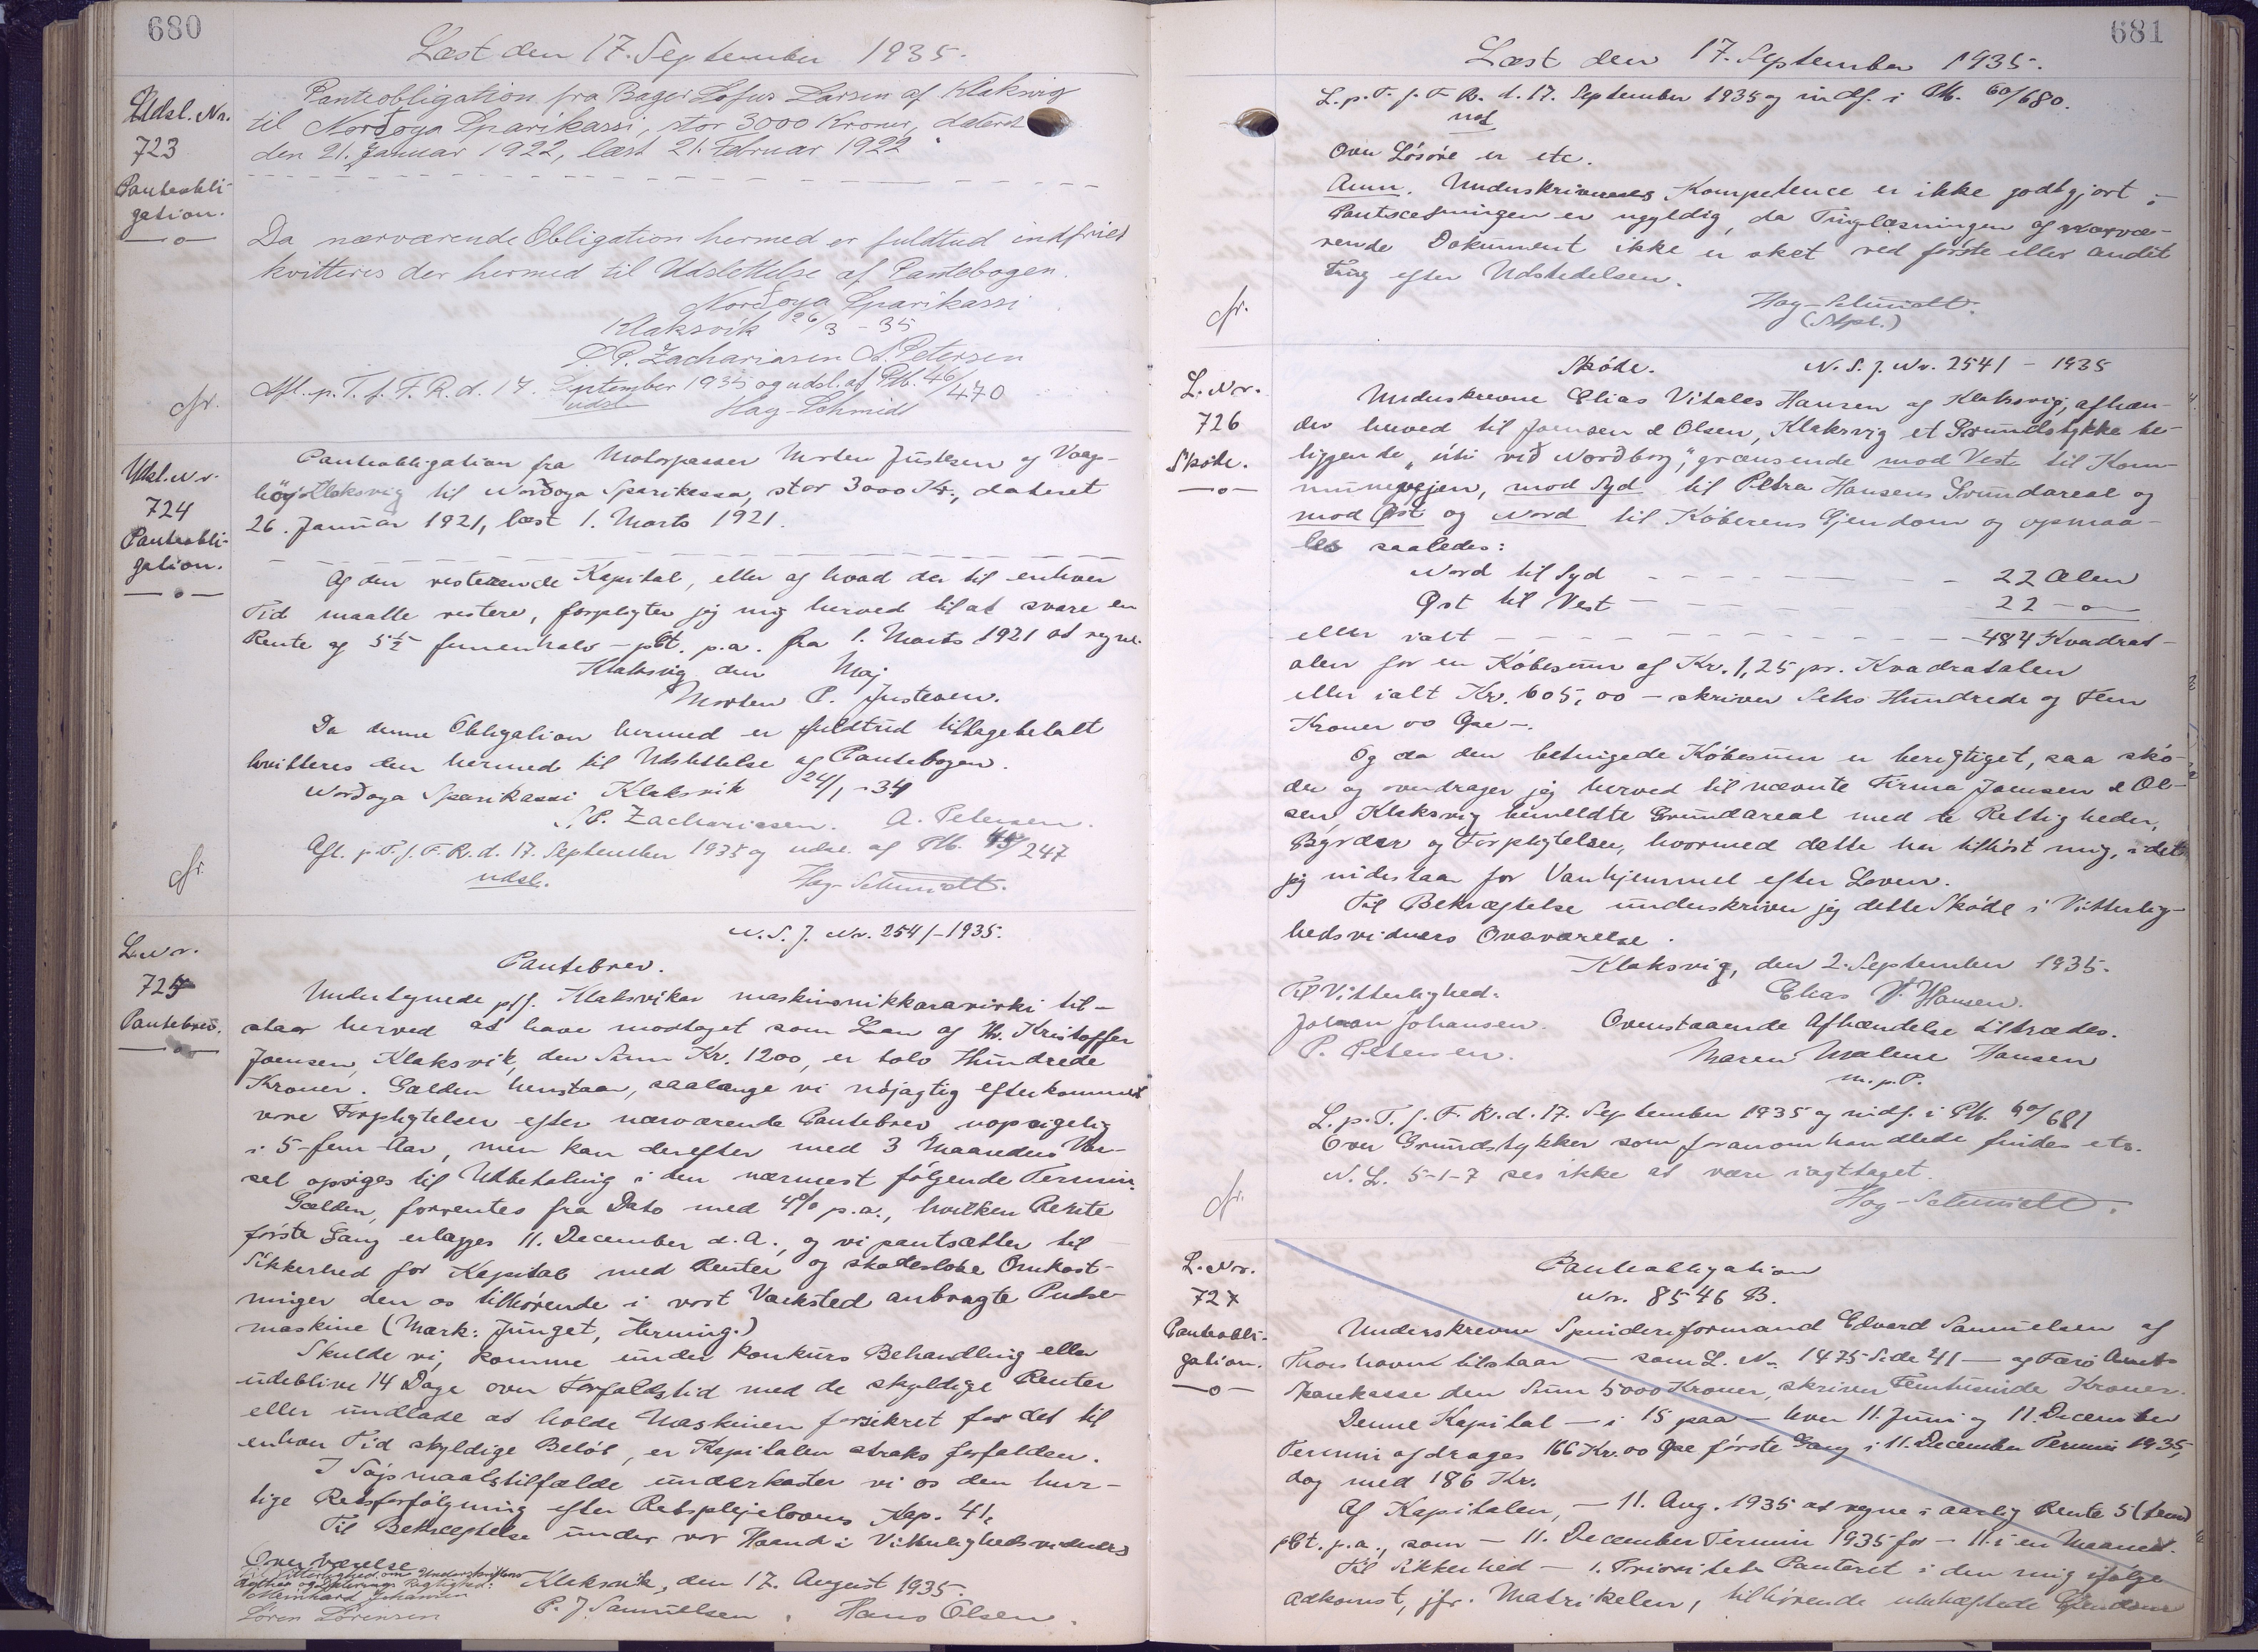 680
Læst den 17. September 1935.
Udsl. Nr.
723
Panteobli-
gation.
Panteobligation fra Bager Sofus Larsen af Klaksvig
til Norðoya Sparikassi, stor 3000 Kroner, dateret
den 21. Januar 1922, læst 21. Februar 1922
Da nærværende Obligation hermed er fuldtud indfriet
kvitteres der hermed til Udslettelse af Pantebogen.
Norðoya Sparikassi
Klaksvik 26/3 - 35
S. P. Zachariasen A. Petersen
Afl. p. T. f. F. R. d. 17. September 1935 og udsl. af Ptb. 46/470
udsl. Hag-Schmidt
Udsl. Nr.
724
Panteobli-
gation.
Panteobligation fra Motorpasser Morten Justesen af Vaag-
høj Klaksvig til Norðoya Sparikassa, stor 3000 Kr., dateret
26. Januar 1921, læst 1. Marts 1921.
Af den resterende Kapital, eller af hvad der til enhver
Tid maatte restere, forpligter jeg mig herved til at svare en
Rente af 5 1/2 femenhalv - pCt. p.a. fra 1. Marts 1921 at regne.
Klaksvig den Maj
Morten P. Justesen.
Da denne Obligation hermed er fuldtud tilbagebetalt
kvitteres den hermed til Udslettelse af Pantebogen.
Norðoya Sparikassi Klaksvik 24/1 - 34
S. P. Zachariasen. A. Petersen.
Afl. p. T. f. F. R. d. 17. September 1935 og udsl. af Ptb. 45/247
udsl. Hag-Schmidt.
L. Nr.
725
Pantebrev.
N. S. J. Nr. 2541-1935.
Pantebrev.
Undertegnede p/f. Klaksvikar maskinsnikkaravirki til-
staar herved at have modtaget som Laan af Hr. Kristoffer
Joensen, Klaksvik, den Sum Kr. 1200, er tolv Hundrede
Kroner. Gælden henstaar, saalænge vi nøjagtig efterkommer
vore Forpligtelser efter nærværende Pantebrev uopsigelig
i 5-fem-Aar, men kan derefter med 3 Maaneders Var-
sel opsiges til Udbetaling i den nærmest følgende Termin.
Gælden, forrentes fra Dato med 4% p.a., hvilken Rente
første Gang erlægges 11. December d. A., og vi pantsætter til
Sikkerhed for Kapital med Renter og skadesløse Omkost-
ninger den os tilhørende i vort Værksted anbragte Pudse-
maskine (Mærk: Junget, Herning.)
Skulde vi, komme under Konkurs Behandling eller
udeblive 14 Dage over Forfaldstid med de skyldige Renter
eller undlade at holde Maskinen forsikret for det til
enhver Tid skyldige Beløb, er Kapitalen straks forfalden.
I Søjsmaalstilfælde underkaster vi os den hur-
tige Retsforfølgning efter Retsplejelovens Kap. 41.
Til Bekræftelse under vor Haand i Vitterlighedsvidners
Overværelse
Til Vitterlighed om Underskriftens
Ægthed og Dateringens Rigtighed:
Meinhard Johansen
Søren Sørensen
Klaksvik, den 17. August 1935.
P. J Samuelsen, Hans Olsen.
681
Læst den 17. September 1935.
L. p. T. f. F. R. d. 17. September 1935 og indf. i Ptb. 60/680.
Over Løsøre er etc.
Anm. Underskrivernes Kompetence er ikke godtgjort;
Pantsætningen er ugyldig, da Tinglæsningen af nærvæ-
rende Dokument ikke er sket ved første eller andet
Ting efter Udstedelsen.
Hag-Schmidt.
L. Nr.
726
Skøde.
Skøde. N. S. J. Nr. 2541 - 1935
Underskrevne Elias Vitales Hansen af Klaksvig, afhæn-
der herved til Joensen & Olsen, Klaksvig et Grundstykke be-
liggende „úti við Norðborg," grænsende mod Vest til Kom-
munevejen, mod Syd til Petra Hansens Grundareal og
mod Øst og Nord til Køberens Ejendom og opmaa-
les saaledes:
Nord til Syd 22 Alen
Øst til Vest 22 -o-
eller ialt 484 Kvadrat-
alen for en Købesum af Kr. 1,25 pr. Kvadratalen
eller ialt Kr. 605,00 - skriver Seks Hundrede og Fem
Kroner 00 Øre -.
Og da den betingede Købesum er berigtiget, saa skø-
der og overdrager jeg herved til nævnte Firma Joensen & Ol-
sen, Klaksvig bemeldte Grundareal med de Rettigheder,
Byrder og Forpligtelser, hvormed dette har tilhørt mig, idet
jeg indestaar for Vanhjemmel efter Loven.
Til Bekræftelse underskriver jeg dette Skøde i Vitterlig-
hedsvidners Overværelse.
Klaksvig, den 2. September 1935.
Til Vitterlighed: Elias V. Hansen.
Johan Johansen. Ovenstaaende Afhændelse tiltrædes.
P. Petersen. Maren Malene Hansen
m. p. P.
L. p. T. f. F. R. d. 17. September 1935 og indf. i Ptb. 60/681
Over Grundstykker som foranomhandlede findes etc.
N. L. 5-1-7 ses ikke at være iagttaget.
Hag-Schmidt.
L. Nr.
727
Panteobli-
gation.
Panteobligation
Nr. 8546 B.
Underskrevne Spinderiformand Edvard Samuelsen af
Thorshavn tilstaar - som L. No 1475 Side 241 - af Færø Amts
Sparekasse den Sum 5000 Kroner, skriver Femtusinde Kroner.
Denne Kapital - i 15 paa - hver 11. Juni og 11. December
Termin afdrages 166 Kr. 00 Øre første Gang i 11. December Termin 1935,
dog med 186 Kr.
Af Kapitalen, - 11. Aug. 1935 at regne i aarlig Rente 5 (fem)
pCt. p.a., som - 11. December Termin 1935 for - 11. i en Maaned.
Til Sikkerhed - 1. Prioritets Panteret i den mig ifølge
Adkomst, jfr. Matrikelen, tilhørende ubehæftede Ejendom